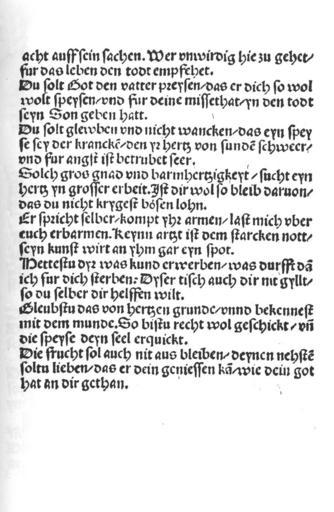 acht auff sein sachen. Wer vnwirdig hie zu gehet/
fur das leben den todt empfehet.
Du solt Got den vatter preysen/das er dich so wol
wolt speysen/vnd fur deine missethat/yn den todt
seyn Son geben hatt.
Du solt glewben vnd nicht wancken/das eyn spey
se sey der krancke͂/den yr hertz von sunde͂ schweer/
vnd fur angst ist betrubet seer.
Solch gros gnad vnd barmhertzigkeyt/sucht eyn
hertz yn grosser erbeit. Ist dir wol so bleib daruon/
das du nicht krygest bösen lohn.
Er spricht selber/kompt yhr armen/last mich vber
euch erbarmen. Keynn artzt ist dem starcken nott/
seyn kunst wirt an yhm gar eyn spot.
Hettestu dyr was kund erwerben/was durfft da͂
ich fur dich sterben: Dyser tisch auch dir nit gyllt/
so du selber dir helffen wilt.
Gleubstu das von hertzen grunde/vnnd bekennest
mit dem munde. So bistu recht wol geschickt/vn͂
die speyse deyn seel erquickt.
Die frucht sol auch nit aus bleiben/deynen nehste͂
soltu lieben/das er dein geniessen ka͂/wie dein got
hat an dir gethan.